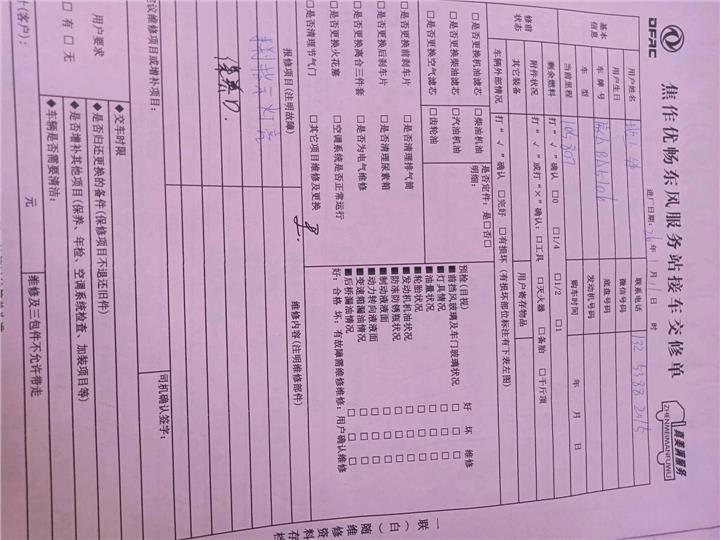 DFAC
焦作优畅东风服务站接车交修单
真美满服务
ZHENMEIMANFUWU
进厂日期: 年 月 11 日 时
基本信息
用户姓名
联系电话 132 5388 2015
用户生日
微信号码
车牌号
底盘号码
车型
发动机号码
当前里程
购车时间 年 月 日
修前状态
剩余燃料 打“√”确认 □0 □1/4 □1/2 □1
附件状况 打“√”或打“×”确认: □工具 □灭火器 □备胎 □千斤顶
其它装备
用户寄存物品
车辆外部情况 打“√”确认 □完好 □有损坏(有损坏部位标注有下表左图)
□是否更换机油滤芯 □柴油机油
□是否更换柴油滤芯 □汽油机油
□是否更换空气滤芯 □齿轮油
是否定件: 是□否□
明细:
□是否更换前刹车片 □是否清理排气筒
□是否更换后刹车片 □是否清理尿素箱
□是否更换离合三件套 □是否为电气维修
□是否更换火花塞 □空调系统是否正常运行
□是否清理节气门 □其它项目维修及更换
预检(目视) 好 坏 维修
■前挡风玻璃及车门玻璃状况 □ □ □
■灯具情况 □ □ □
■油量状况 □ □ □
■轮胎状况 □ □ □
■发动机机油状况 □ □ □
■防冻防锈瓶状况 □ □ □
■制动液液面 □ □ □
■动力转向液液面 □ □ □
■变速箱漏油情况 □ □ □
■后桥漏油情况 □ □ □
好: 合格 坏: 有故障需维修维修: 用户确认维修
报修项目(注明故障)
维修内容(注明维修部件)
议维修项目或增补项目:
司机确认签字:
用户要求
□有 □无
◆交车时限
◆是否归还更换的备件(保修项目不退还旧件)
◆是否增补其他项目(保养、年检、空调系统检查、加装项目等)
◆车辆是否需要清洁:
(客户):
元
维修及三包件不允许带走
一联(白)随维修资